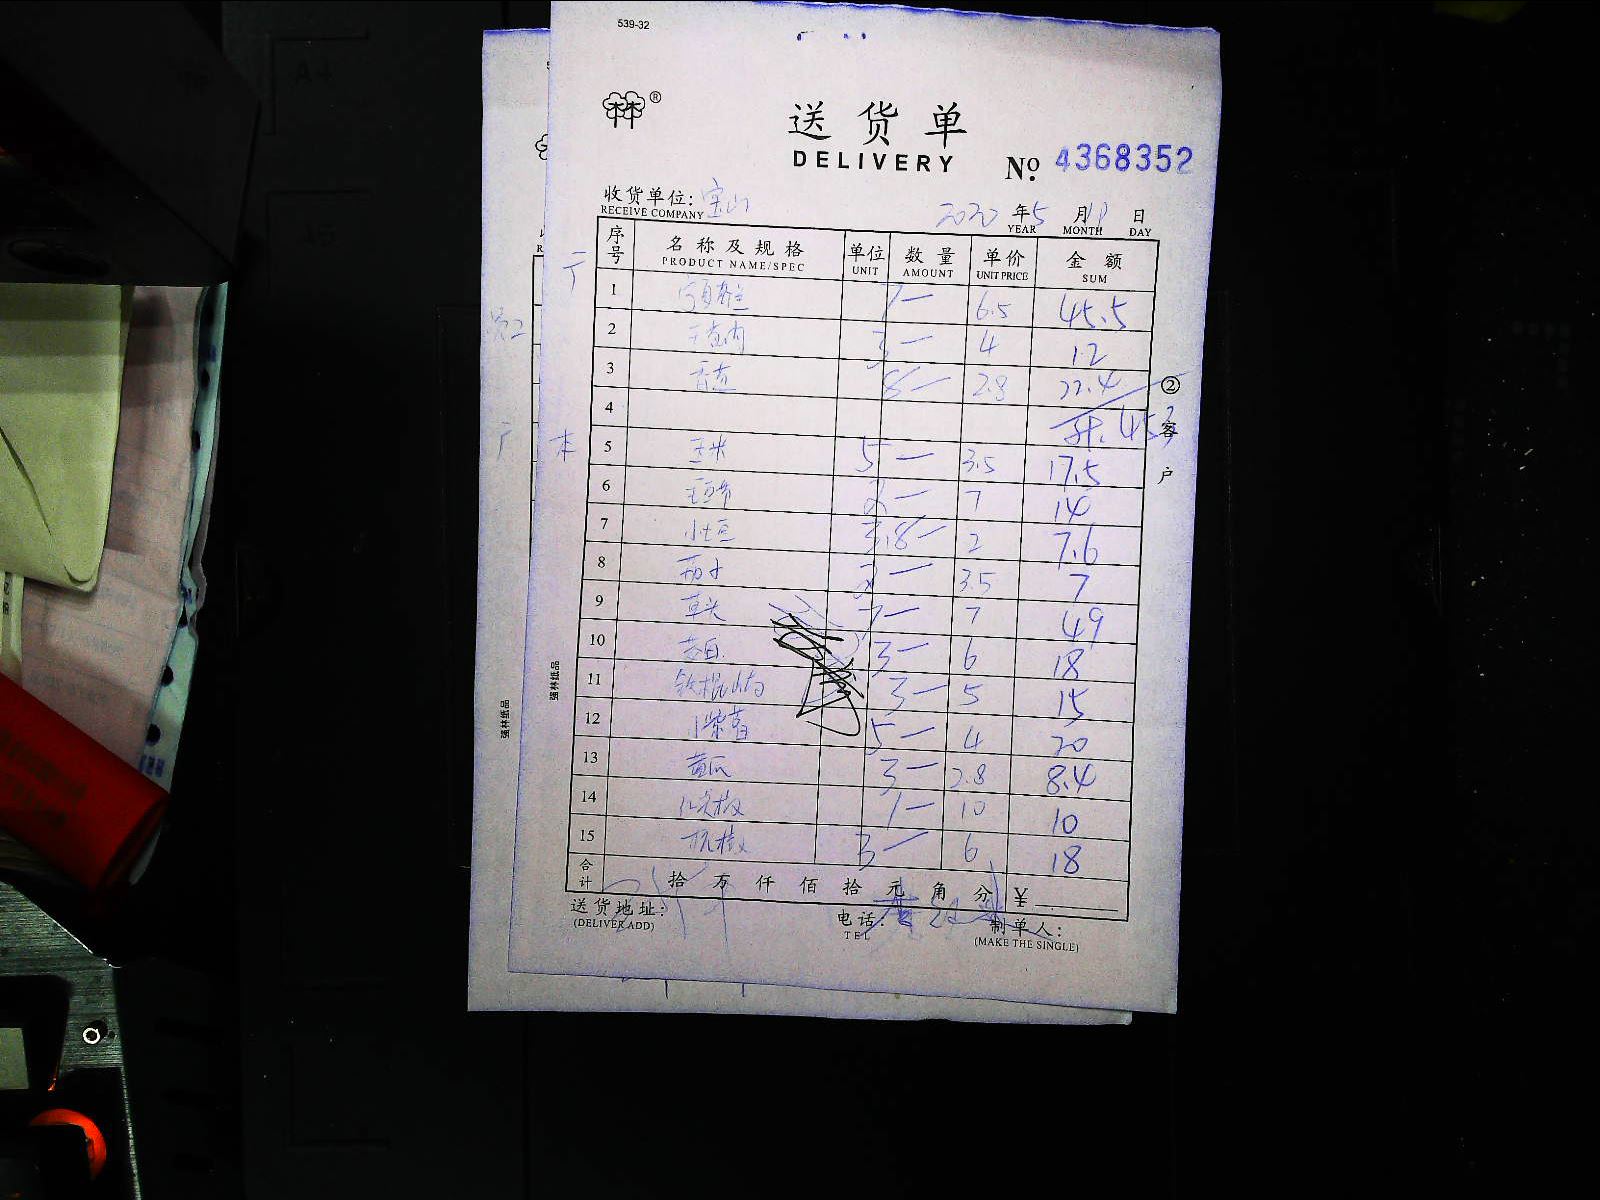 539-32
®
送货单
DELIVERY
No. 4368352
收货单位: 宝山
RECEIVE COMPANY
2020 年 5 月 日
YEAR MONTH DAY
序号 名称及规格 单位 数量 单价 金额
PRODUCT NAME/SPEC UNIT AMOUNT UNIT PRICE SUM
1 7— 6.5 45.5
2 3— 4 12
3 香 8— 2.8 22.4
4
5 玉米 5— 3.5 17.5
6 2— 7 14
7 小土豆 3.8— 2 7.6
8 2— 3.5 7
9 草头 7— 7 49
10 茭白 3— 6 18
11 铁棍山药 3— 5 15
12 小紫 5— 4 20
13 黄瓜 3— 2.8 8.4
14 1— 10 10
15 杭椒 3— 6 18
合计 拾 万 仟 佰 拾 元 角 分 ¥
送货地址:
(DELIVER ADD)
电话:
TEL
制单人:
(MAKE THE SINGLE)
②客户
强林纸品
强林纸品